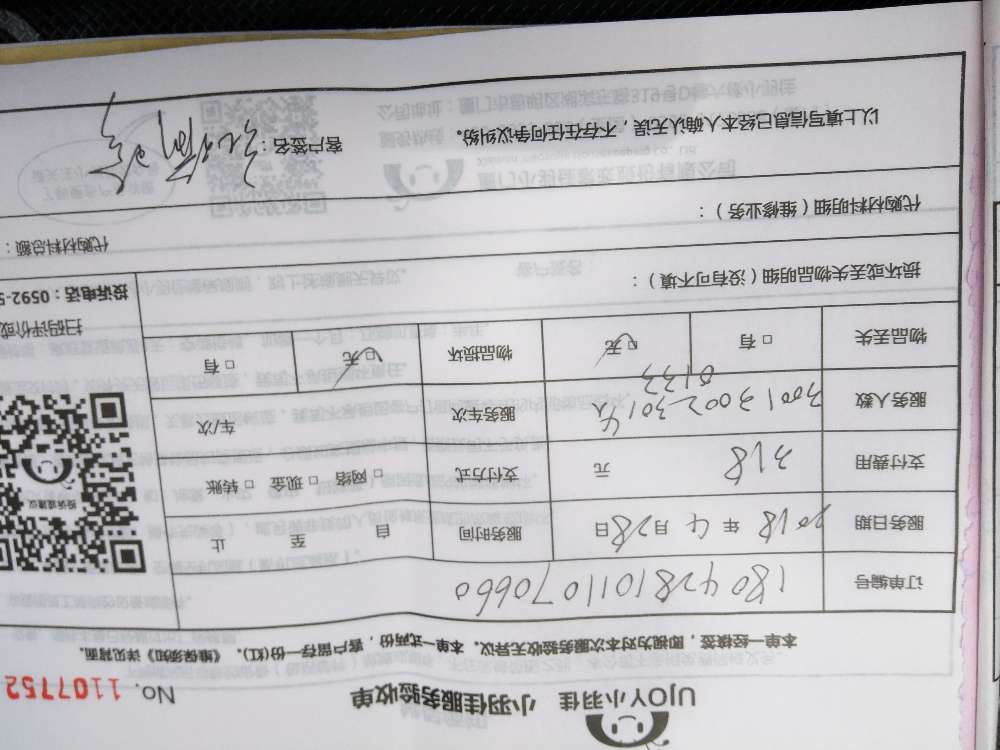 UJOY小羽佳 小羽佳服务验收单 No. 1107752
本单一经签核，即视为对本次服务验收无异议。本单一式两份，客户留存一份(红)。《维保须知》详见背面。
订单编号 1804281011070660
服务日期 2018 年 4 月 28 日 服务时间 自 至 止
支付费用 318 元 支付方式 □ 网络 □ 现金 □ 转账
服务人数 3001 3002 3014 人 服务车次 车/次
0133
物品丢失 □ 有 □ 无 物品损坏 □ 无 □ 有
扫码评价或
投诉或建议
投诉电话：0592-5
损坏或丢失物品明细（没有可不填）：
代购材料明细（维修业务）： 代购材料总额：
以上填写信息已经本人确认无误，不存在任何争议纠纷。 客户签名：